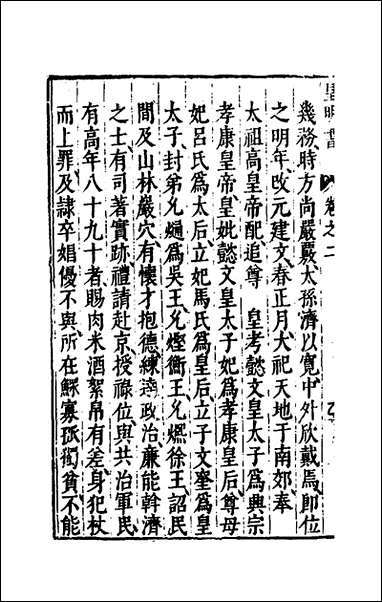 皇明書 卷之二
幾務時方尚嚴覈太孫濟以寬中外欣戴焉即位
之明年改元建文春正月大祀天地于南郊奉
太祖高皇帝配追尊 皇考懿文皇太子爲興宗
孝康皇帝皇妣懿文皇太子妃爲孝康皇后尊母
妃呂氏爲太后立妃馬氏爲皇后立子文奎爲皇
太子封弟允熥爲吳王允熞衡王允㷩徐王詔民
間及山林嚴穴有懷才抱德練達政治廉能幹濟
之士有司著實跡禮請赴京授祿位與共治軍民
有高年八十九十者賜肉米酒絮帛有差身犯杖
而上罪及隷卒娼優不與所在鰥寡孤獨貧不能